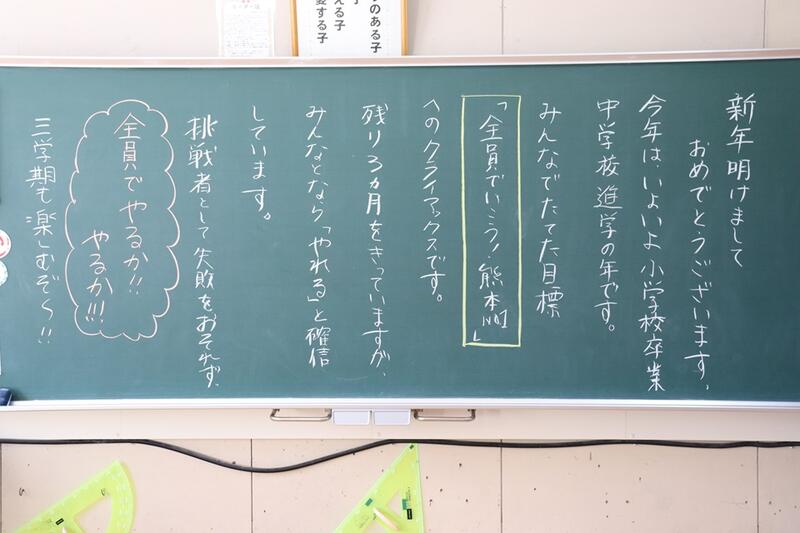 のある子
える子
する子
新年明けまして
おめでとうございます。
今年は、いよいよ小学校卒業
中学校進学の年です。
みんなでたてた目標
「全員でいこう!熊本」
へのクライマックスです。
残り3ヵ月をきっていますが、
みんなとなら「やれる」と確信
しています。
挑戦者として失敗をおそれず、
全員でやるか!!
やるか!!!
三学期も楽しむぞ〜!!